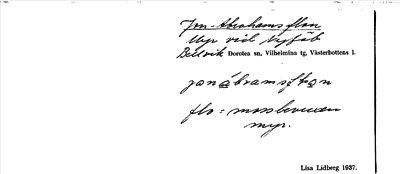 Jon-Abrahamsflon
Myr vid Nyfäb
Bellvik Dorotea sn, Vilhelmina tg, Västerbottens l.
flo = mossbevuxen
myr.
Lisa Lidberg 1937.